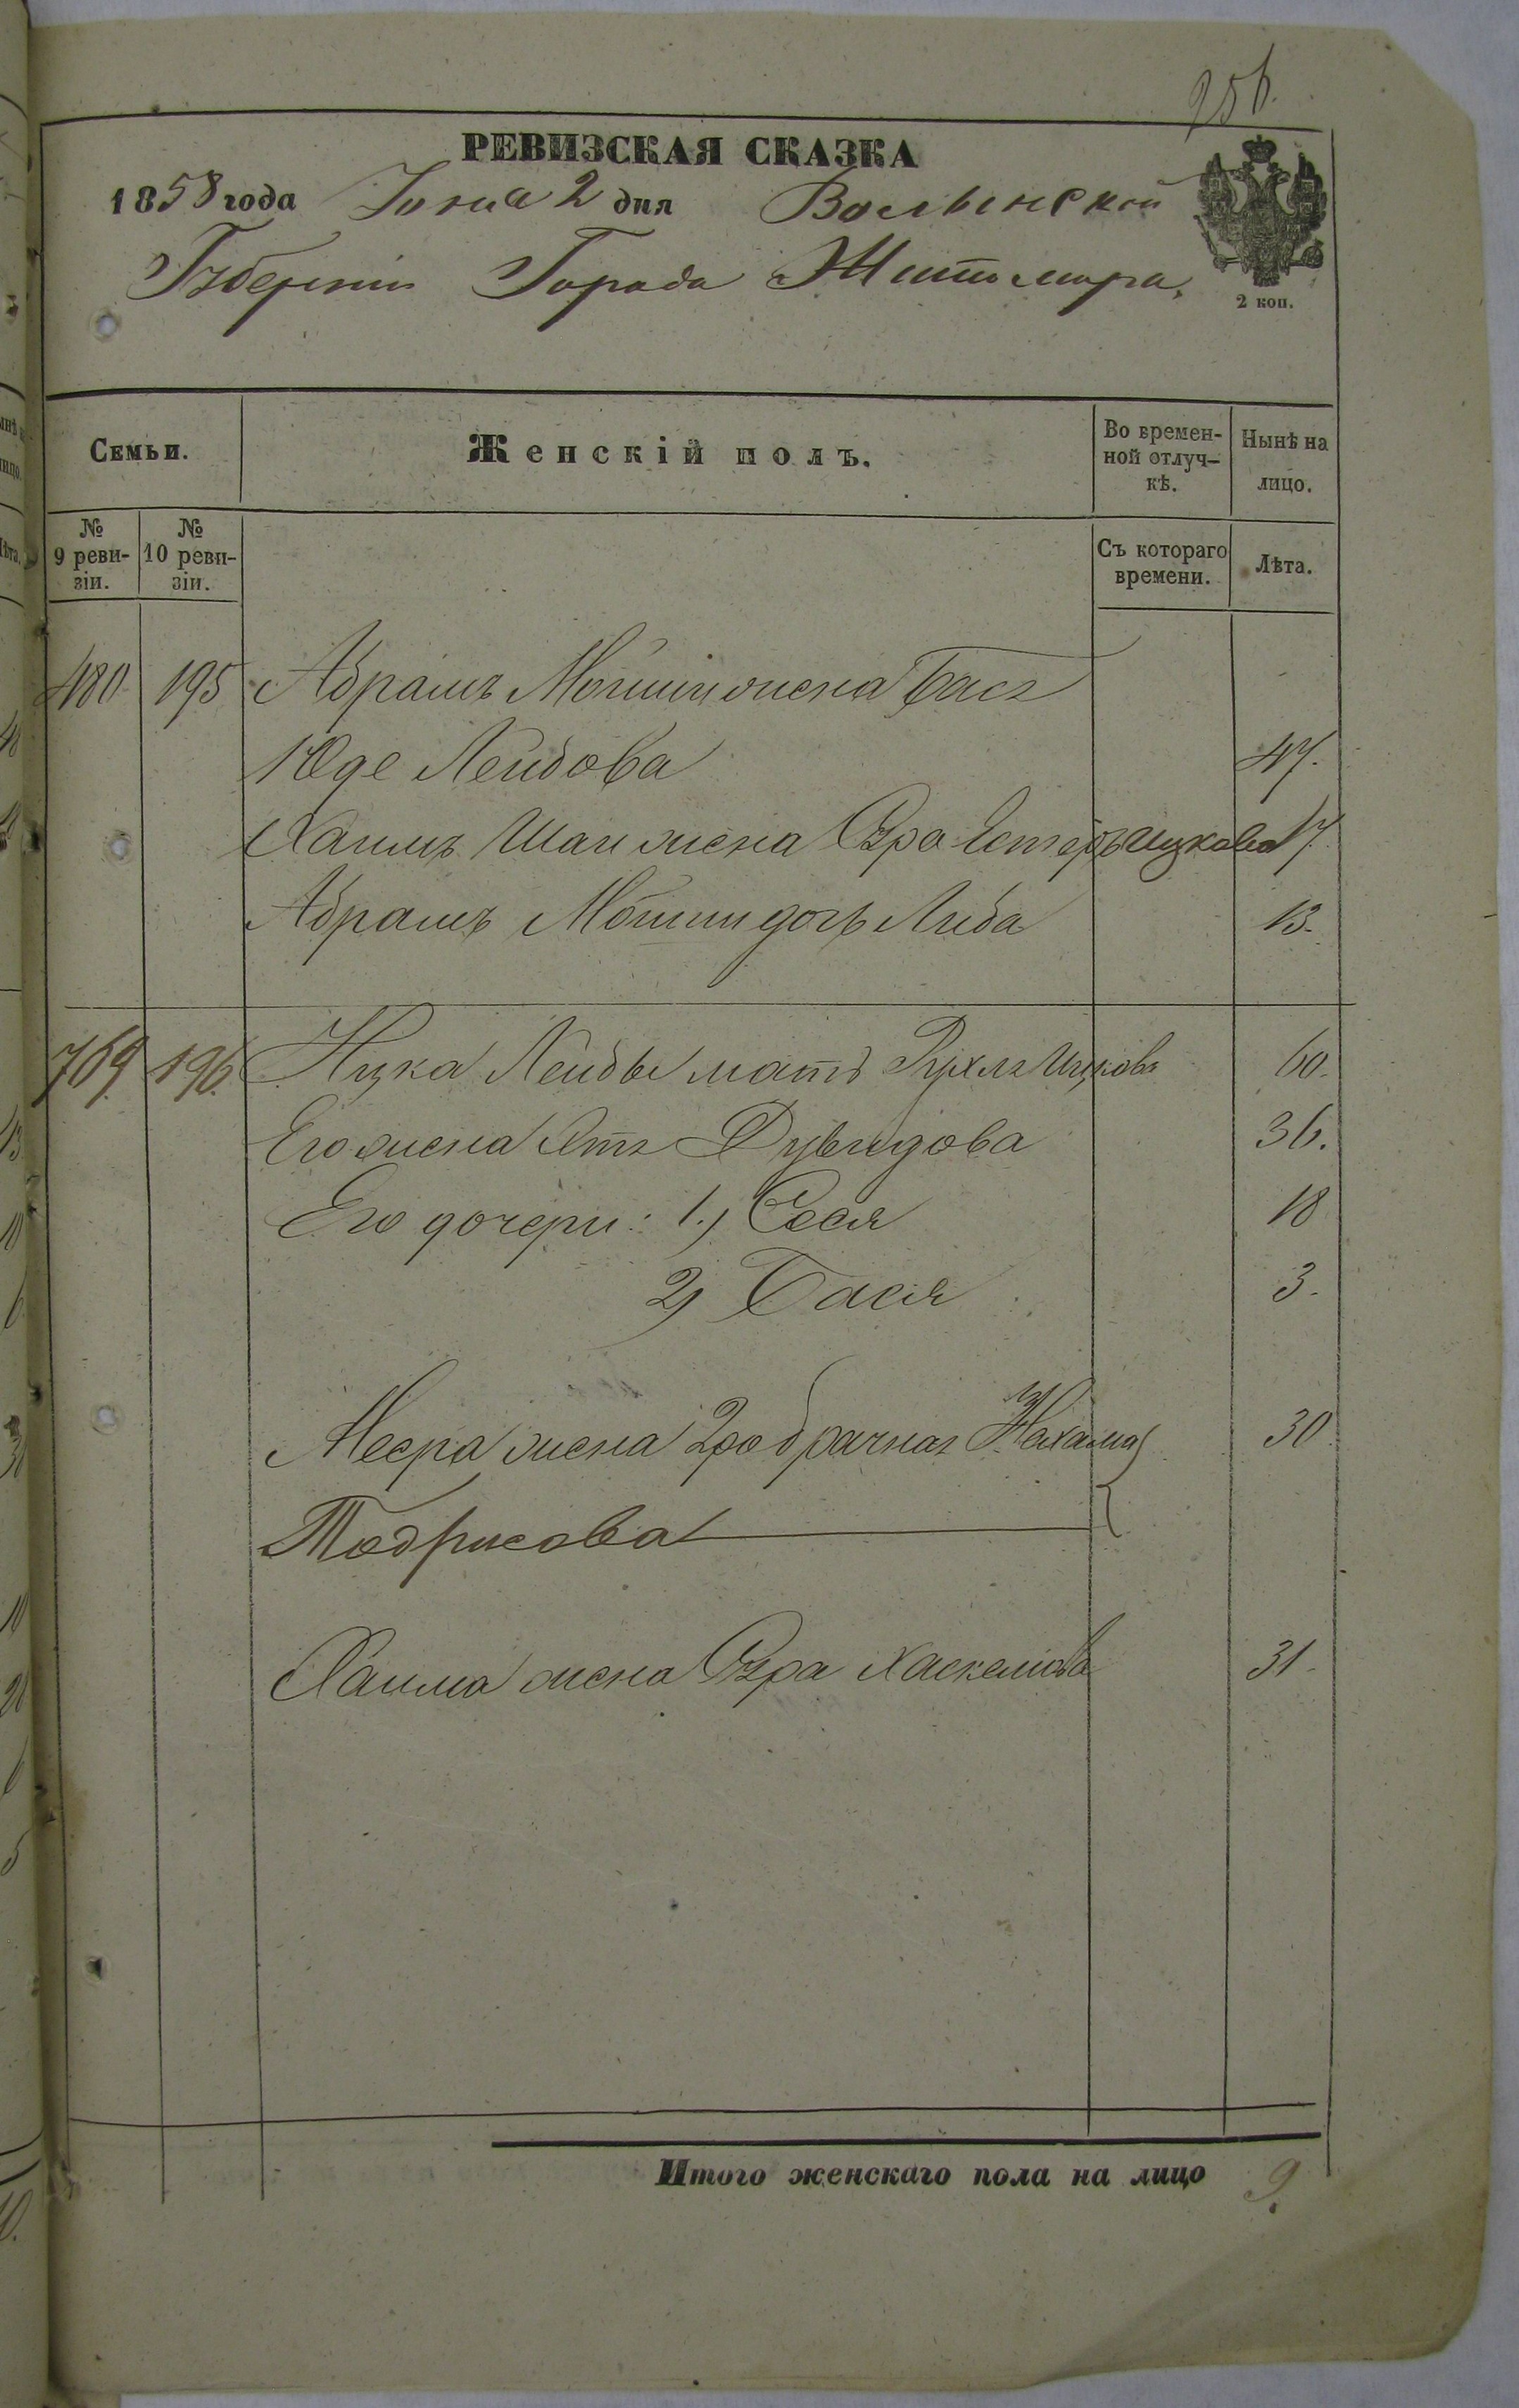 956.
РЕВИЗСКАЯ СКАЗКА
1858 года Іюня 2 дня Волынской
Губерніи Города Житомира,
2 коп.
Семьи.
Женскій полъ.
Во времен-
ной отлуч-
кѣ.
Нынѣ на
лицо.
№
9 реви-
зіи.
№
10 реви-
зіи.
Съ котораго
времени.
Лѣта.
480 195 Абрамъ Мошки жена Бася
Юде Лейбова 47.
Хаимъ Шаи жена Сура Естеръ Ицкова 17.
Абрамъ Мошки дочь Либа 13.
769 196. Ицка Лейбы мать Рухля Ицкова 60.
Его жена Дувидова 36.
Его дочери: 1.) Сося 18
2) Бася 3.
Меера жена 2робрачная Нехама 30
Тодрисова
Хаима жена Сура Хаскелиова 31.
Итого женскаго пола на лицо 9.